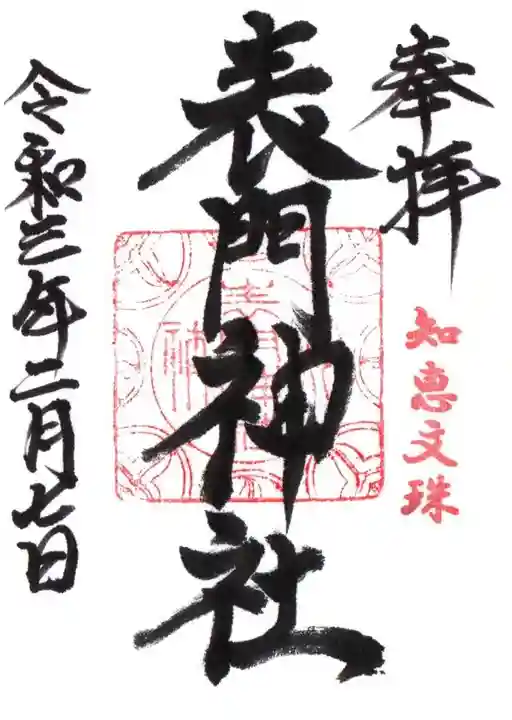 奉拝
知恵文珠
表門神社
令和三年二月七日